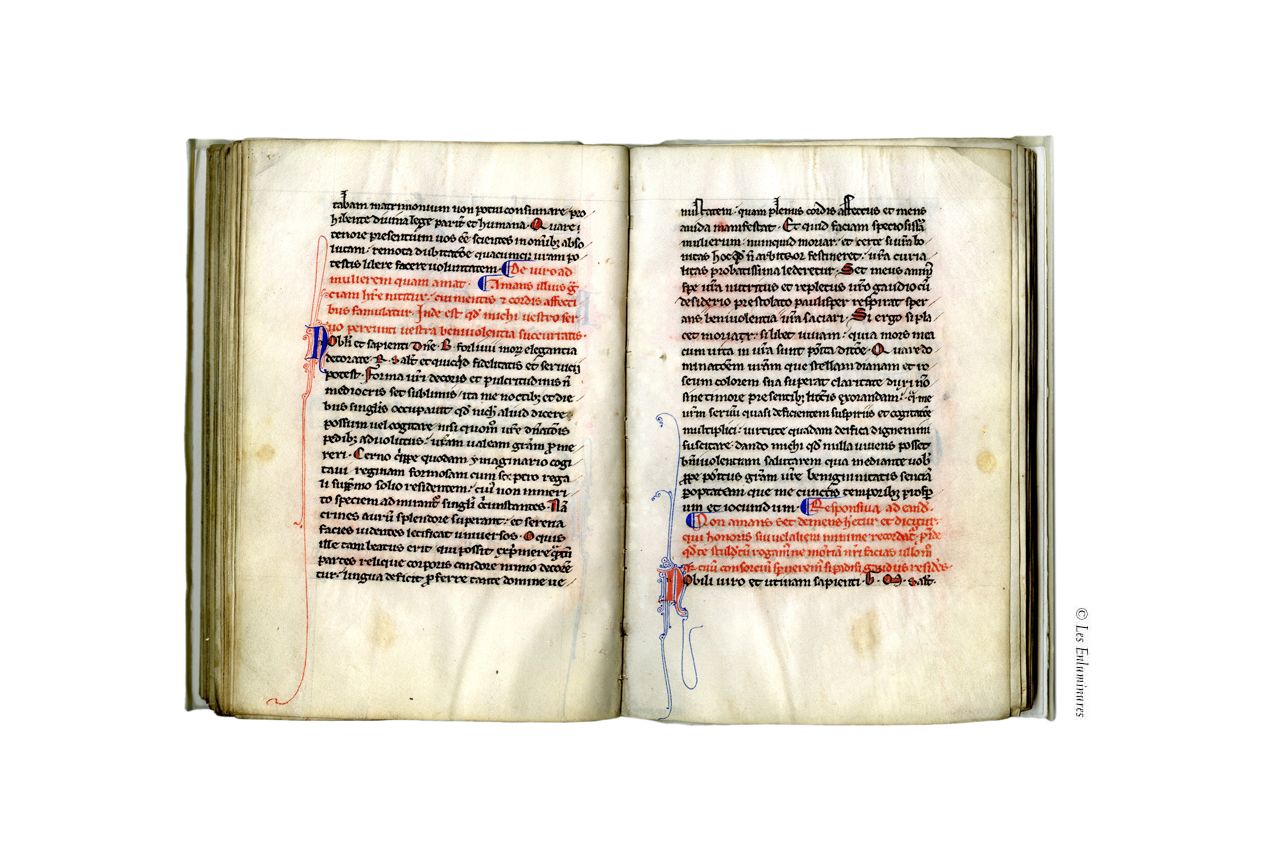 tabam matrimonium non potui consumare pro
hibente divina lege parit et humana. Quare
tenore presentium vos ee scientes in omib abso
lutam. remota dubitatoe quacumq uram po
testis libere facere voluntatem. De uiro ad
mulierem quam amat. Amans illius gr
ciam hre nititur. cui mentis et cordis affecti
bus famulatur. Inde est qd michi uestro ser
uo pereunti uestra beniuolentia succurratis.
Nobili et sapienti Dne. B. forliuii morum elegantia
decorate. R. salt et quicqd fidelitatis et seruicii
potest. Forma uri decoris et pulcritudinis n
mediocris set sublimis ita me noctib et die
bus singlis occupauit qd nich aliud dicere
possum uel cogitare nisi quom ure dnatois
pedib aduolutus uram ualeam gram pme
reri. Cerno qppe quodam ymaginario cogi
tatu reginam formosam cum sceptro rega
li supmo solio residentem. cui non inmeri
to speciem admirant singli circumstantes. Na
crines auru splendore superant. et serena
facies uidentes letificat uniuersos. O quis
ille tam beatus erit qui possit exprimere qtu
partes relique corporis candore nimio decore
tur. lingua deficit pferre tante domine ue
nustatem. quam plenius cordis affectus et mens
auida manifestat. Et quid faciam speciosissia
mulierum. numquid moriar. et certe si ura bo
nitas hoc qd n arbitror festineret. ura curia
litas probatissima lederetur. Set meus anim
spe ura nutritus et repletus uro gaudio cu
desiderio prestolato paulisper respirat sper
ans beniuolentia ura saciari. Si ergo si pla
cet moriar. si libet uiuam. quia mors mea
cum uita in ura sunt posita ditoe. Quare do
minatoem uram que stellam dianam et ro
seum colorem sua superat claritate duxi no
sine timore presentib litris exorandam. q me
urm seruu quasi deficientem suspiriis et cogitatoe
multiplici. uirtute quadam deifica dignemini
suscitare. dando michi qd nulla uiuens posset
beniuolentiam salutarem qua mediante uob
ppe positus gram ure benignitatis senciam
peroptatam que me cunctis temporib prosp
um et iocundum. Responsiua ad eand.
Non amans set demens hetur et dicitur.
qui honoris sui uel alieni minime recordat. pinde
qd te stultu rogamine
Nobili uiro et utinam sapienti. b. M. salt.
© Les Enluminures